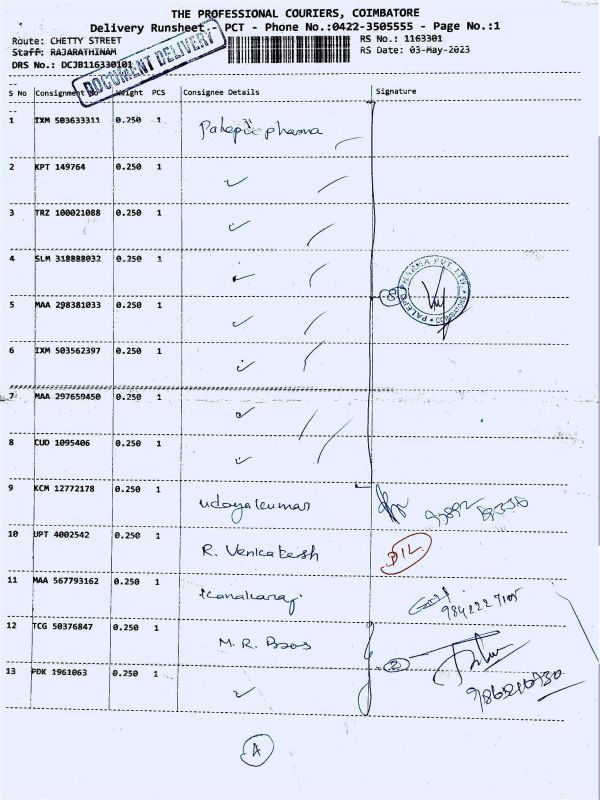 THE PROFESSIONAL COURIERS, COIMBATORE
Delivery Runsheet - PCT - Phone No.:0422-3505555 - Page No.:1
Route: CHETTY STREET RS No.: 1163301
Staff: RAJARATHINAM RS Date: 03-May-2023
DRS No.: DCJB116330101
DOCUMENT DELIVERY
S No Consignment No Weight PCS Consignee Details Signature
1 IXM 503633311 0.250 1 pharma
2 KPT 149764 0.250 1 ✓
3 TRZ 100021088 0.250 1 ✓
4 SLM 318888032 0.250 1 ✓
PHARMA PVT. LTD. COIMBATORE
8
5 MAA 298381033 0.250 1 ✓
6 IXM 503562397 0.250 1 ✓
7 MAA 297659450 0.250 1 ✓
8 CUD 1095406 0.250 1 ✓
9 KCM 12772178 0.250 1 udayakumar
10 UPT 4002542 0.250 1 R. Venkatesh DIL
11 MAA 567793162 0.250 1 Kanakaraj
12 TCG 50376847 0.250 1 M. R. Bros
2
13 PDK 1961063 0.250 1 ✓
A